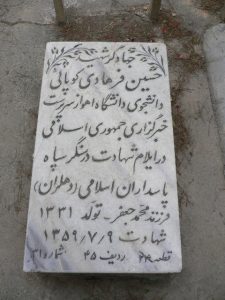 جهادگر شهید
حسین فرهادی کوپائی
دانشجوی دانشگاه اهواز سرپرست
خبرگزاری جمهوری اسلامی
در ایلام شهادت در سنگر سپاه
پاسداران اسلامی (دهلران)
فرزند محمد جعفر - تولد ۱۳۳۱
شهادت ۱۳۵۹/۷/۹
قطعه ۲۴ ردیف ۴۵ شماره ۳۱